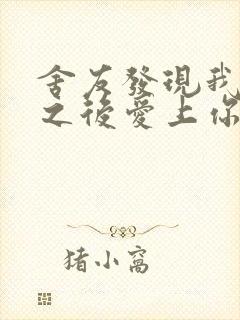 舍友發現我
之後愛上你
猪小窩